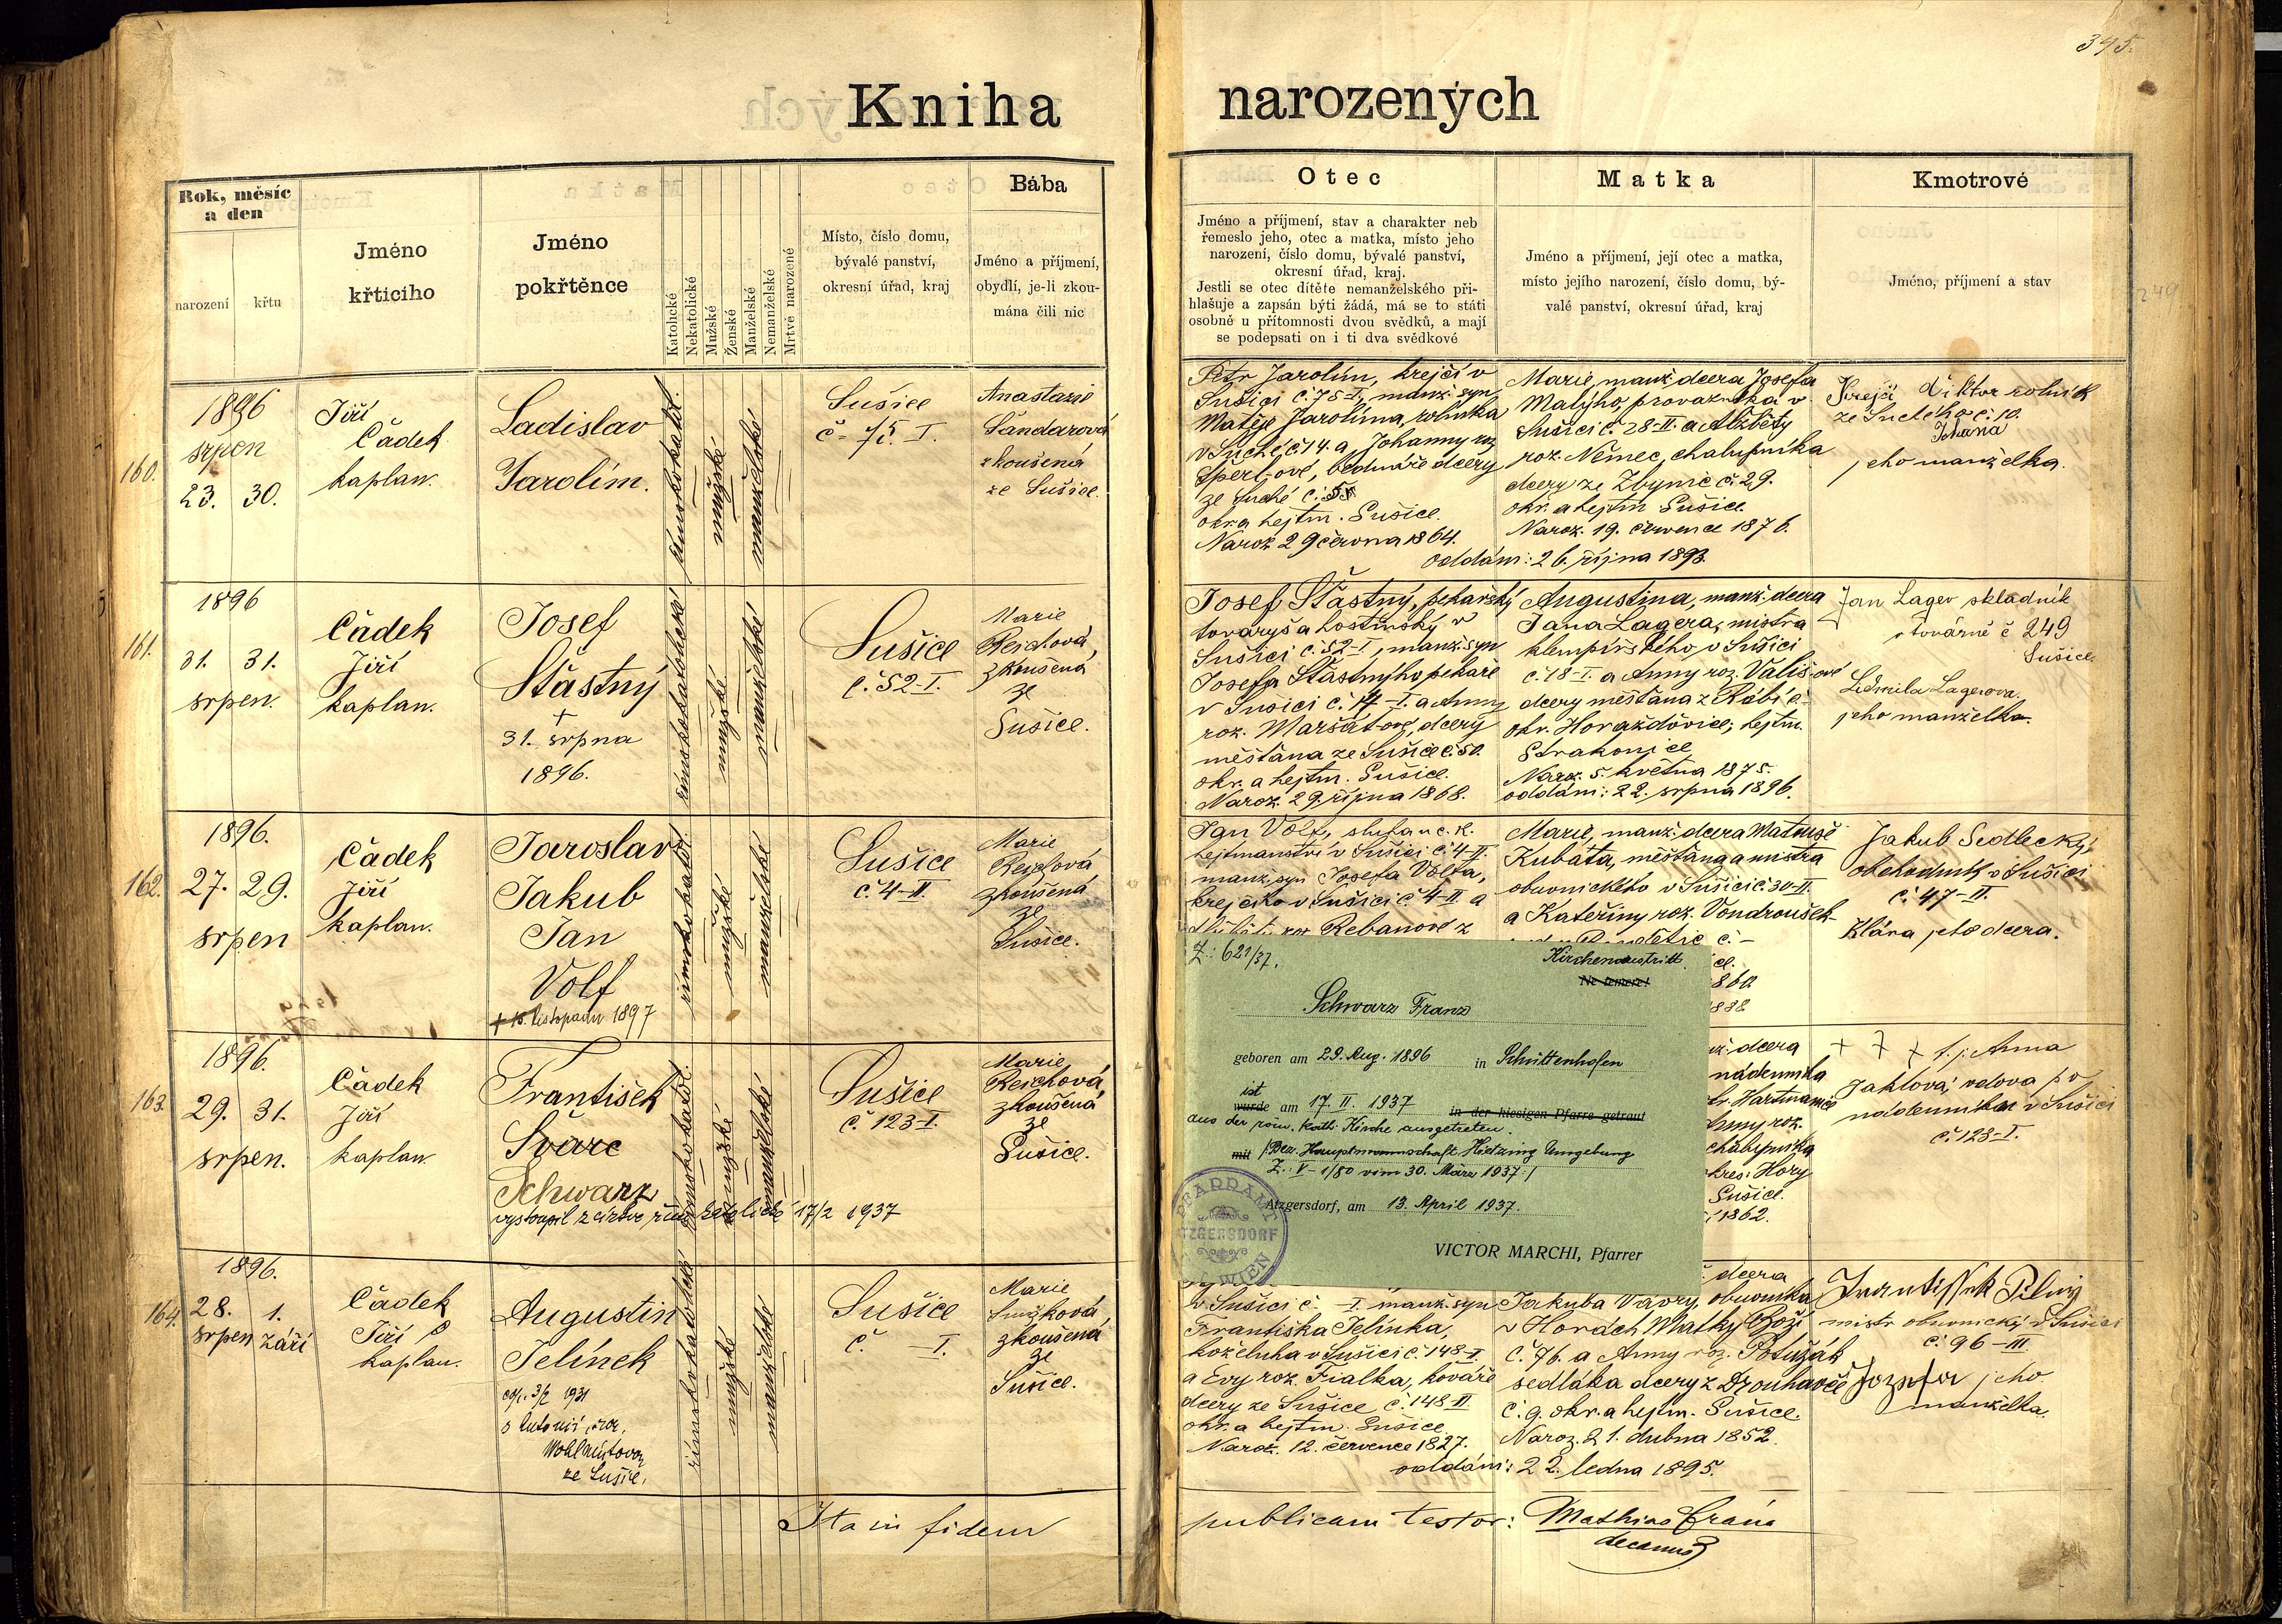 345.
Kniha narozených
Rok, měsíc
a den
narození
křtu
Jméno
křticího
Jméno
pokřtěnce
Katolické
Nekatolické
Mužské
Ženské
Manželské
Nemanželské
Mrtvě narozené
Místo, číslo domu,
bývalé panství,
okresní úřad, kraj
Bába
Jméno a příjmení,
obydlí, je-li zkou-
mána čili nic
Otec
Jméno a příjmení, stav a charakter neb
řemeslo jeho, otec a matka, místo jeho
narození, číslo domu, bývalé panství,
okresní úřad, kraj.
Jestli se otec dítěte nemanželského při-
hlašuje a zapsán býti žádá, má se to státi
osobně u přítomnosti dvou svědků, a mají
se podepsati on i ti dva svědkové
Matka
Jméno a příjmení, její otec a matka,
místo jejího narození, číslo domu, bý-
valé panství, okresní úřad, kraj
Kmotrové
Jméno, příjmení a stav
249
160.
1896
srpen
23. 30.
Jiří
Čádek
kaplan.
Ladislav
Jarolím.
římskokatol.
mužské
manželské
Sušice
č. 75. I.
Anastazie
Šandarová
zkoušená
ze Sušice.
Petr Jarolím, krejčí v
Sušici č. 75-I., manž. syn
Matěje Jarolíma, rolníka
v Suché, č. 14. a Johanny roz.
bednáře dcery
ze Suché č.
okr. a hejtm. Sušice.
Naroz. 29 června 1864.
Marie, manž. dcera Josefa
Malýho, provazníka v
Sušici č. 28-II. a Alžběty
roz. Němec, chalupníka
dcery ze Zbynic č. 29.
okr. a hejtm. Sušice
Naroz. 19. července 1876.
oddáni: 26. října 1893.
Krejčí Viktor rolník
ze Suchého č. 10.
Johana
jeho manželka.
161.
1896
31. 31.
srpen.
Čádek
Jiří
kaplan.
Josef
Šťastný
+
31. srpna
1896.
římskokatolické
mužské
manželské
Sušice
č. 52-I.
Marie
Reichová,
zkoušená
ze
Sušice.
Josef Šťastný, pekařský
tovaryš a hostinský v
Sušici č. 52-I, manž. syn
Josefa Šťastnýho, pekaře
v Sušici č. 14-I. a Anny
roz. Maršátové, dcery
měšťana ze Sušice č. 50.
okr. a hejtm. Sušice.
Naroz. 29. října 1868.
Augustina, manž. dcera
Jana Lagera, mistra
klempířského v Sušici
č. 18-I. a Anny roz. Vališové
dcery měšťana z Rábí č.-
okr. Horažďovice, hejtm.
Strakonice
Naroz. 5. května 1875.
oddáni: 22. srpna 1896.
Jan Lager skladník
v továrně č 249
Sušice.
Ludmila Lagerova.
jeho manželka.
162.
1896.
27. 29.
srpen
Čádek
Jiří
kaplan.
Jaroslav
Jakub
Jan
Volf
+ 15. listopadu 1897
římskokatol.
mužské
manželské
Sušice
č. 4-II.
Marie
Reichová
zkoušená
ze
Sušice.
Jan Volf, sluha u c. k.
hejtmanství v Sušici č. 4-II.
manž. syn Josefa Volfa,
krejčího v Sušici č. 4-II a
Alžběty roz. Rebanové z
Marie, manž. dcera Matouše
Kubáta, měšťana a mistra
obuvnického v Sušici č. 30-II.
a Kateřiny roz. Vondroušek
č. -
Jakub Sedlecký,
obchodník v Sušici
č. 47-II.
Klára jeho dcera.
Z.: 621/37.
Kirchenaustritt.
Ne temere!
Schwarz Franz
geboren am 29. Aug. 1896 in Schüttenhofen
ist
wurde am 17. II. 1937 in der hiesigen Pfarre getraut
aus der röm. kath. Kirche ausgetreten.
mit /Bez. Hauptmannschaft Hietzing Umgebung
Z.: V-1/80 vom 30. März 1937/
Atzgersdorf, am 13. April 1937.
VICTOR MARCHI, Pfarrer
PFARRAMT
ATZGERSDORF
WIEN
163.
1896.
29. 31.
srpen.
Čádek
Jiří
kaplan.
František
Švarc
Schwarz
vystoupil z církve řím. katolické 17/2 1937
římskokatol.
mužské
manželské
Sušice
č. 123-I.
Marie
Reichová,
zkoušená
ze
Sušice.
dcera
nádenníka
Hartmanic
Anny roz.
chalupníka
okres: Hory
Sušice.
1862.
+ + + t. j. Anna
Jaklová, vdova po
nádenníkovi v Sušici
č. 123-I.
164.
1896.
28. 1.
srpen září
Čádek
Jiří
kaplan.
Augustin
Jelínek
cop. 3/2 1931
s Antonií, roz.
Wohlmutovou
ze Sušice.
římskokatolické
mužské
manželské
Sušice
č. -I.
Marie
Smržková,
zkoušená
ze
Sušice.
v Sušici č. -I. manž. syn
Františka Jelínka,
koželuha v Sušici č. 148-II.
a Evy roz. Fialka, kováře
dcery ze Sušice č. 148-II.
okr. a hejtm. Sušice
Naroz. 12. července 1827.
dcera
Jakuba Vávry, obuvníka
v Horách Matky Boží
č. 76. a Anny roz. Potužák
sedláka dcery z Drouhavče
č. 9. okr. a hejtm. Sušice.
Naroz. 21. dubna 1852.
oddáni: 22. ledna 1895.
mistr obuvnický v Sušici
č. 96-III.
Jozefa jeho
manželka.
Ita in fidem publicam testor: Mathias
decanus